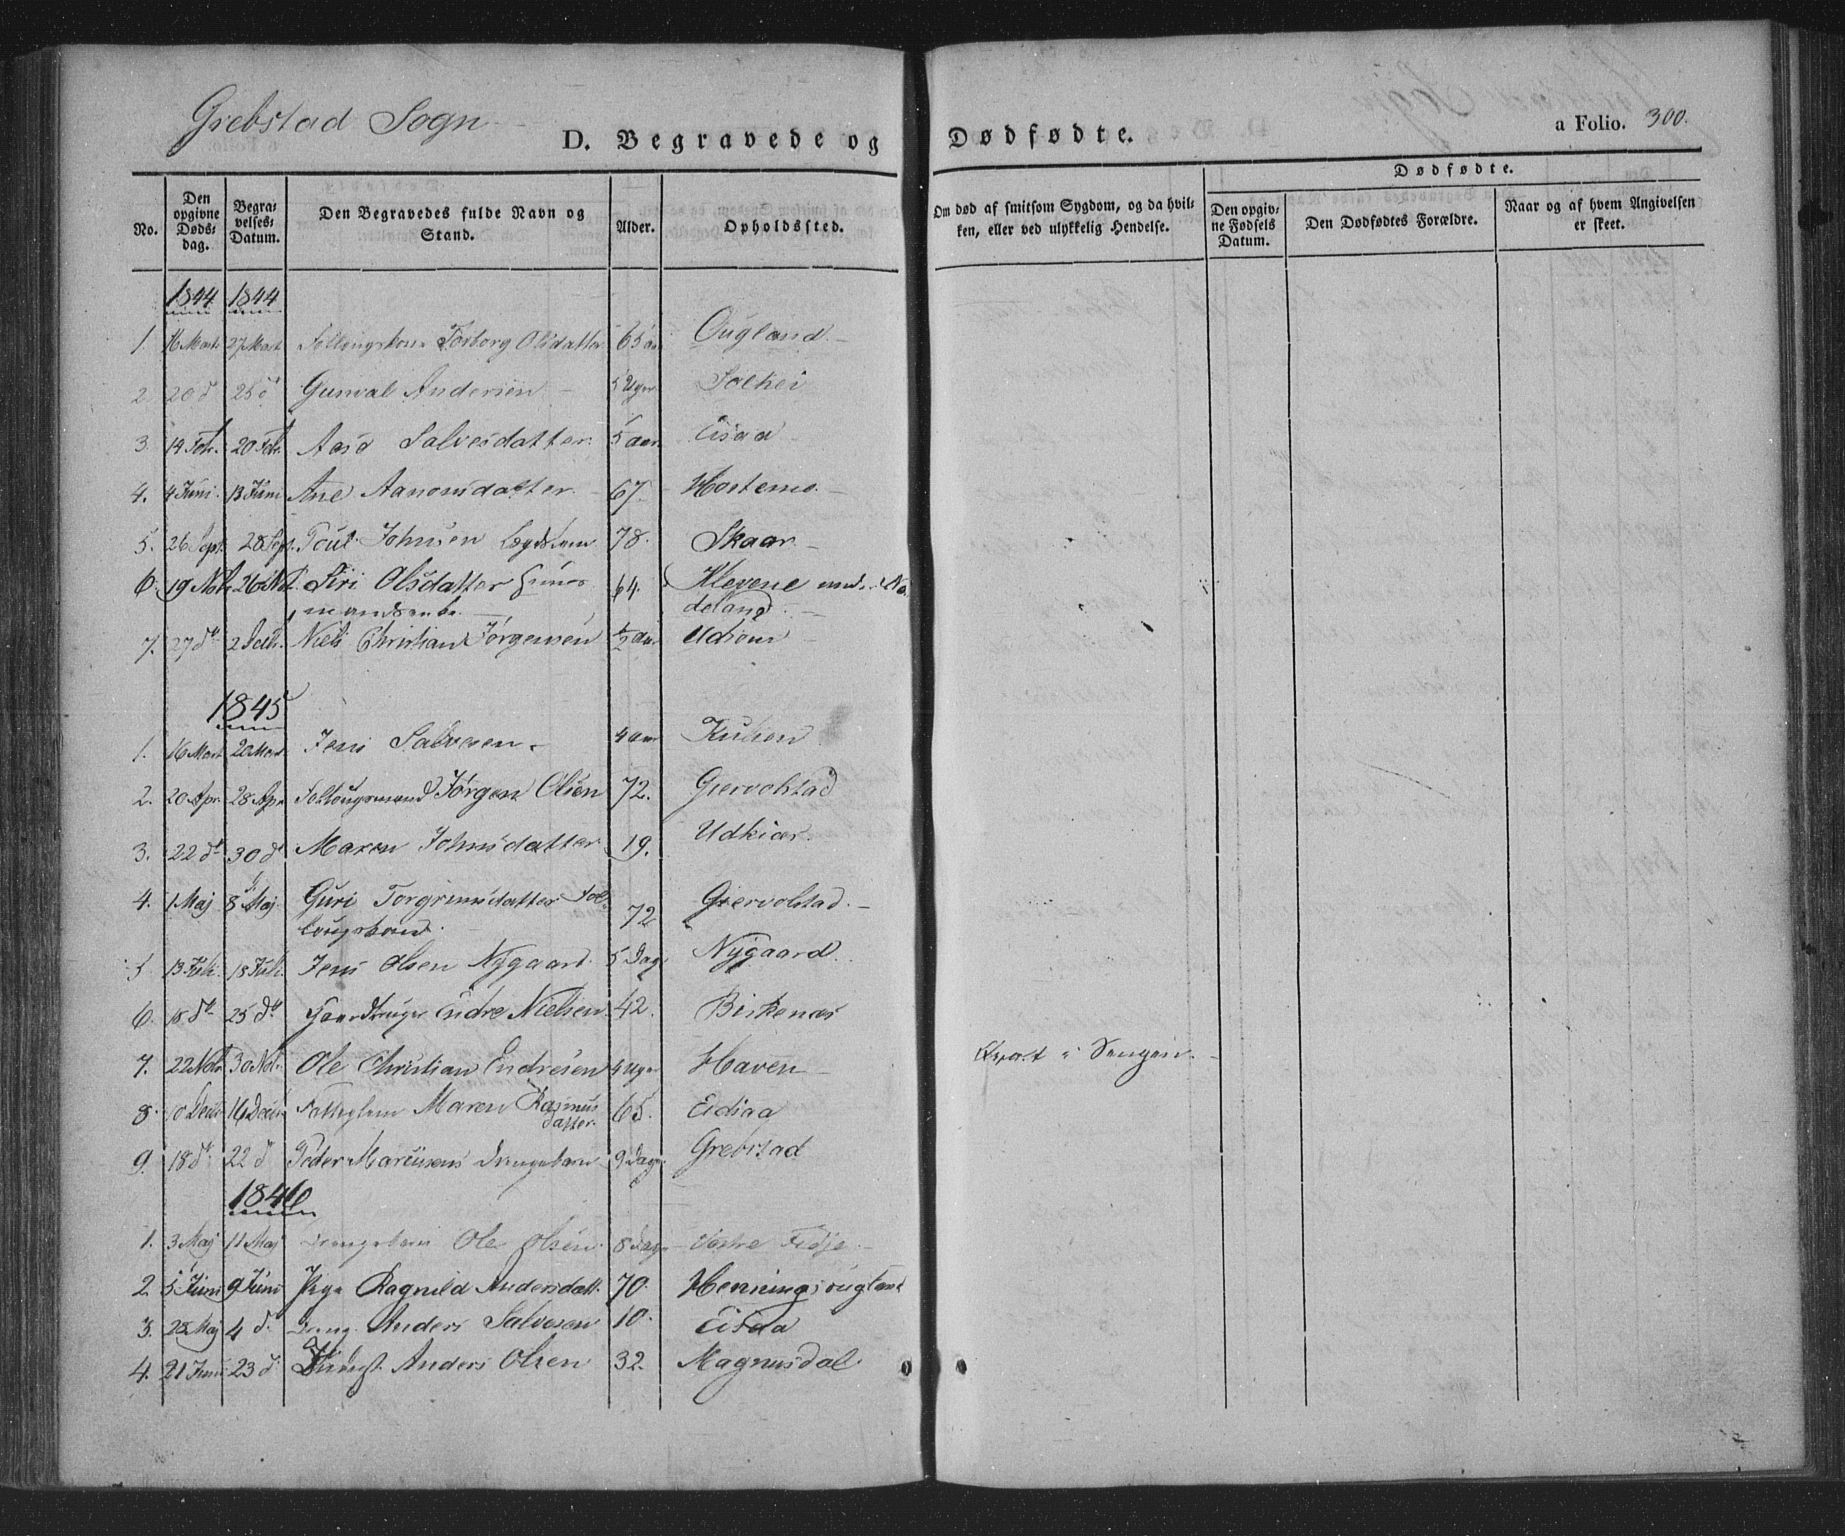 Grebstad Sogn
D. Begravede og Dødfødte.
a Folio. 300.
No.
Den opgivne Døds-dag.
Begra-velses-Datum.
Den Begravedes fulde Navn og Stand.
Alder.
Opholdssted.
Om død af smitsom Sygdom, og da hvil-ken, eller ved ulykkelig Hendelse.
Dødfødte.
Den opgiv-ne Fødsels Datum.
Den Dødfødtes Forældre.
Naar og af hvem Angivelsen er skeet.
1844 1844
1. 16 Marts 27 Marts Torborg Olsdatter 65 aar Ougland.
2. 20 d 25 d Gunval Andersen 5 Uger Solhei
3. 14 Febr. 20 Febr. Aase Salvesdatter 5 aar Eisaa
4. 4 Juni 13 Juni Ane Aanonsdatter 67. Hortemo.
5. 26 Sept. 28 Sept. Poul Johnsen Lægdslem 78. Skaar
6. 19 Nobr 26 Nob. Siri Olsdatter Huus- 64. Klevene under No-
mandsenke. deland.
7. 27 dt 2 Decbr. Niels Christian Jørgensen 1/2 aar Udiour
1845
1. 16 Mart 20 Mart Jens Salvesen 4 aar
2. 20 Apr. 28 Apr Follougsmand Jørgen Olsen 72. Giervolstad
3. 22 dt 30 dt Maren Johnsdatter 19. Udkiær.
4. 1 Maj 8 Maj Guri Torgrimsdatter Fol- 72 Giervolstad.
lougskone.
5. 13 Juli. 18 Juli. Jens Olsen Nygaard. 5 Dage Nygaard.
6. 18 dt 25 dt Gaardbruger Endre Nielsen 42. Birkenæs
7. 22 Nobr 30 Nobr. Ole Christian Endresen 4 Uger Haven Qvalt i Sengen.
8. 10 Decbr 16 Decbr Fatteglem Maren Rasmus 65. Eidiaa
datter.
9. 18 dt 22 d Peder Marcusens Drengebarn 9 Dage Grebstad
1846
1. 3 Maj 11 Maj Drengebarn Ole Olsen. 8 Dage Vestre Fidje.
2. 5 Juni 9 Juni Pige Ragnild Andersdatt. 70. Henningsougland
3. 28 Maj 4 d. Dreng. Anders Salvesen 10. Eisaa
4. 21 Juni 23 d. Anders Olsen 32. Magnusdal